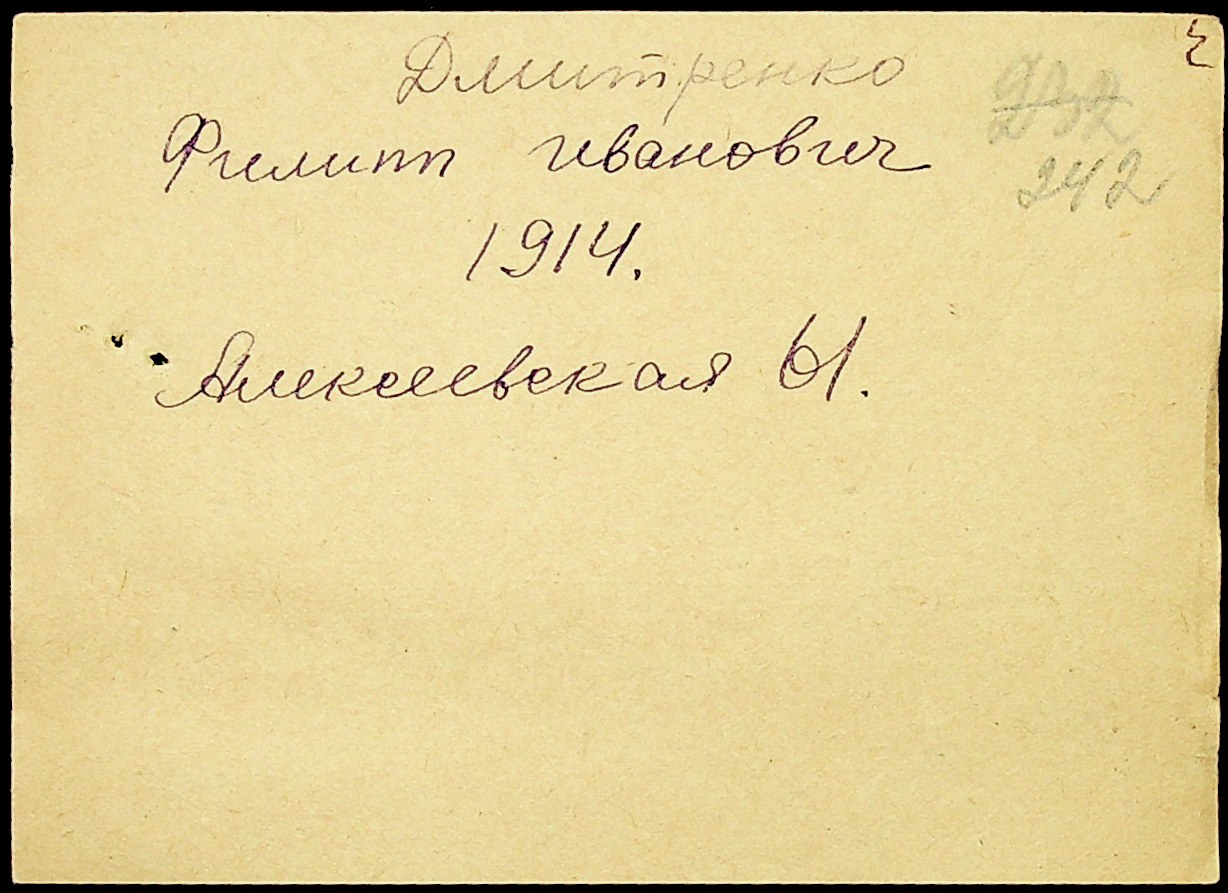 Дмитренко
Филипп Иванович
242
1914.
Алексеевская 61.